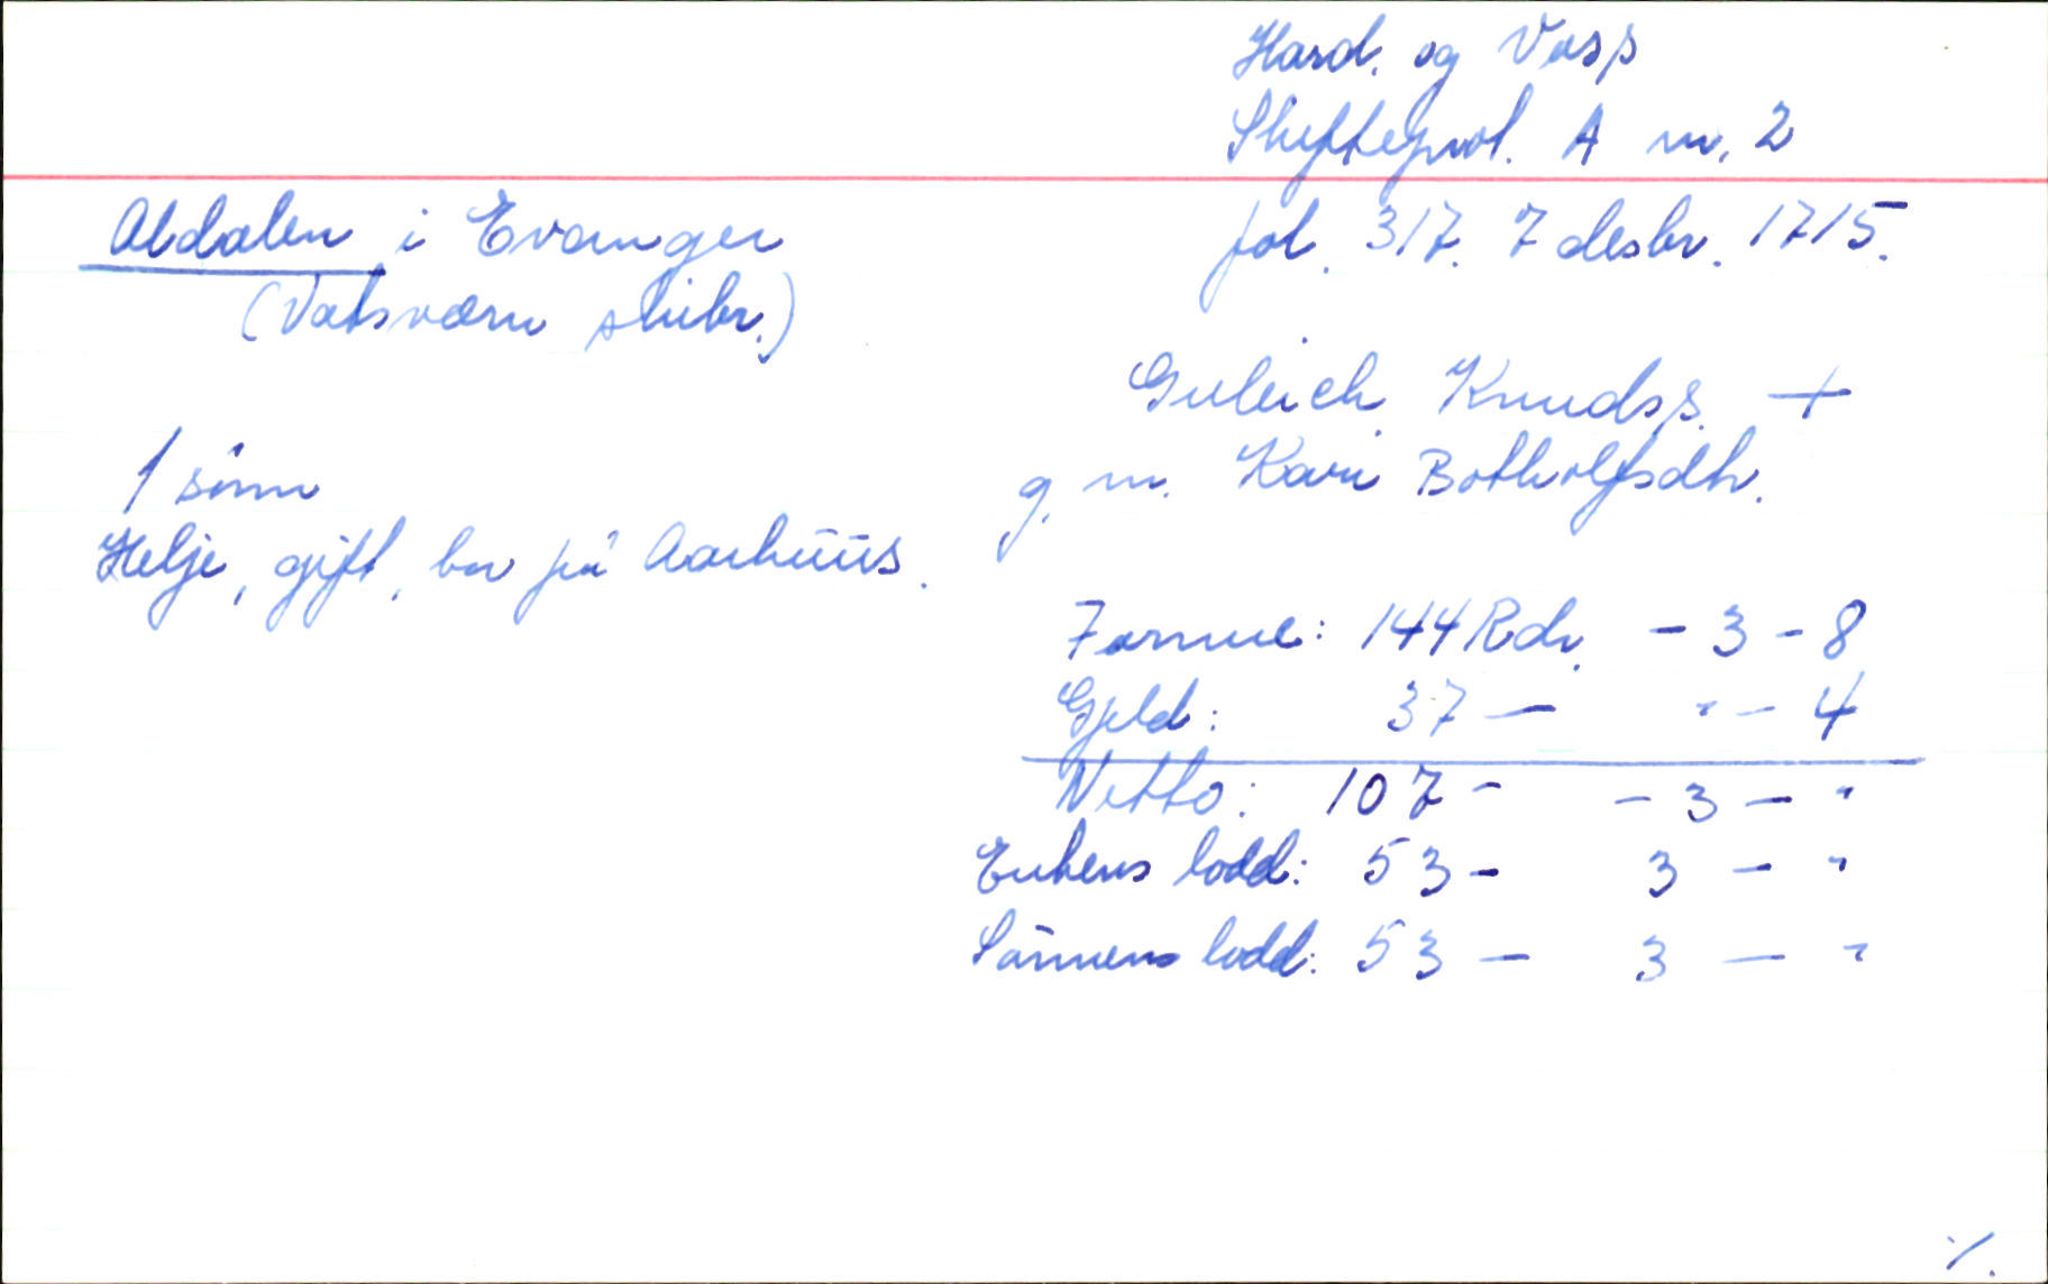 Hard. og Voss
Skifteprol. A nr. 2
fol. 317. 7 desbr. 1715.
Aldalen i Evanger
(Vatsværn skibr.)
Guleich Knudss. +
g. m. Kari Botholfsdtr.
1 sönn
Helje, gift, bor på Aarhuus.
Formue: 144 Rdr. - 3 - 8
Gjeld: 37 - " - 4
Netto: 107 - - 3 - "
Enkens lodd: 53 - 3 - "
Sönnens lodd: 53 - 3 - "
./.